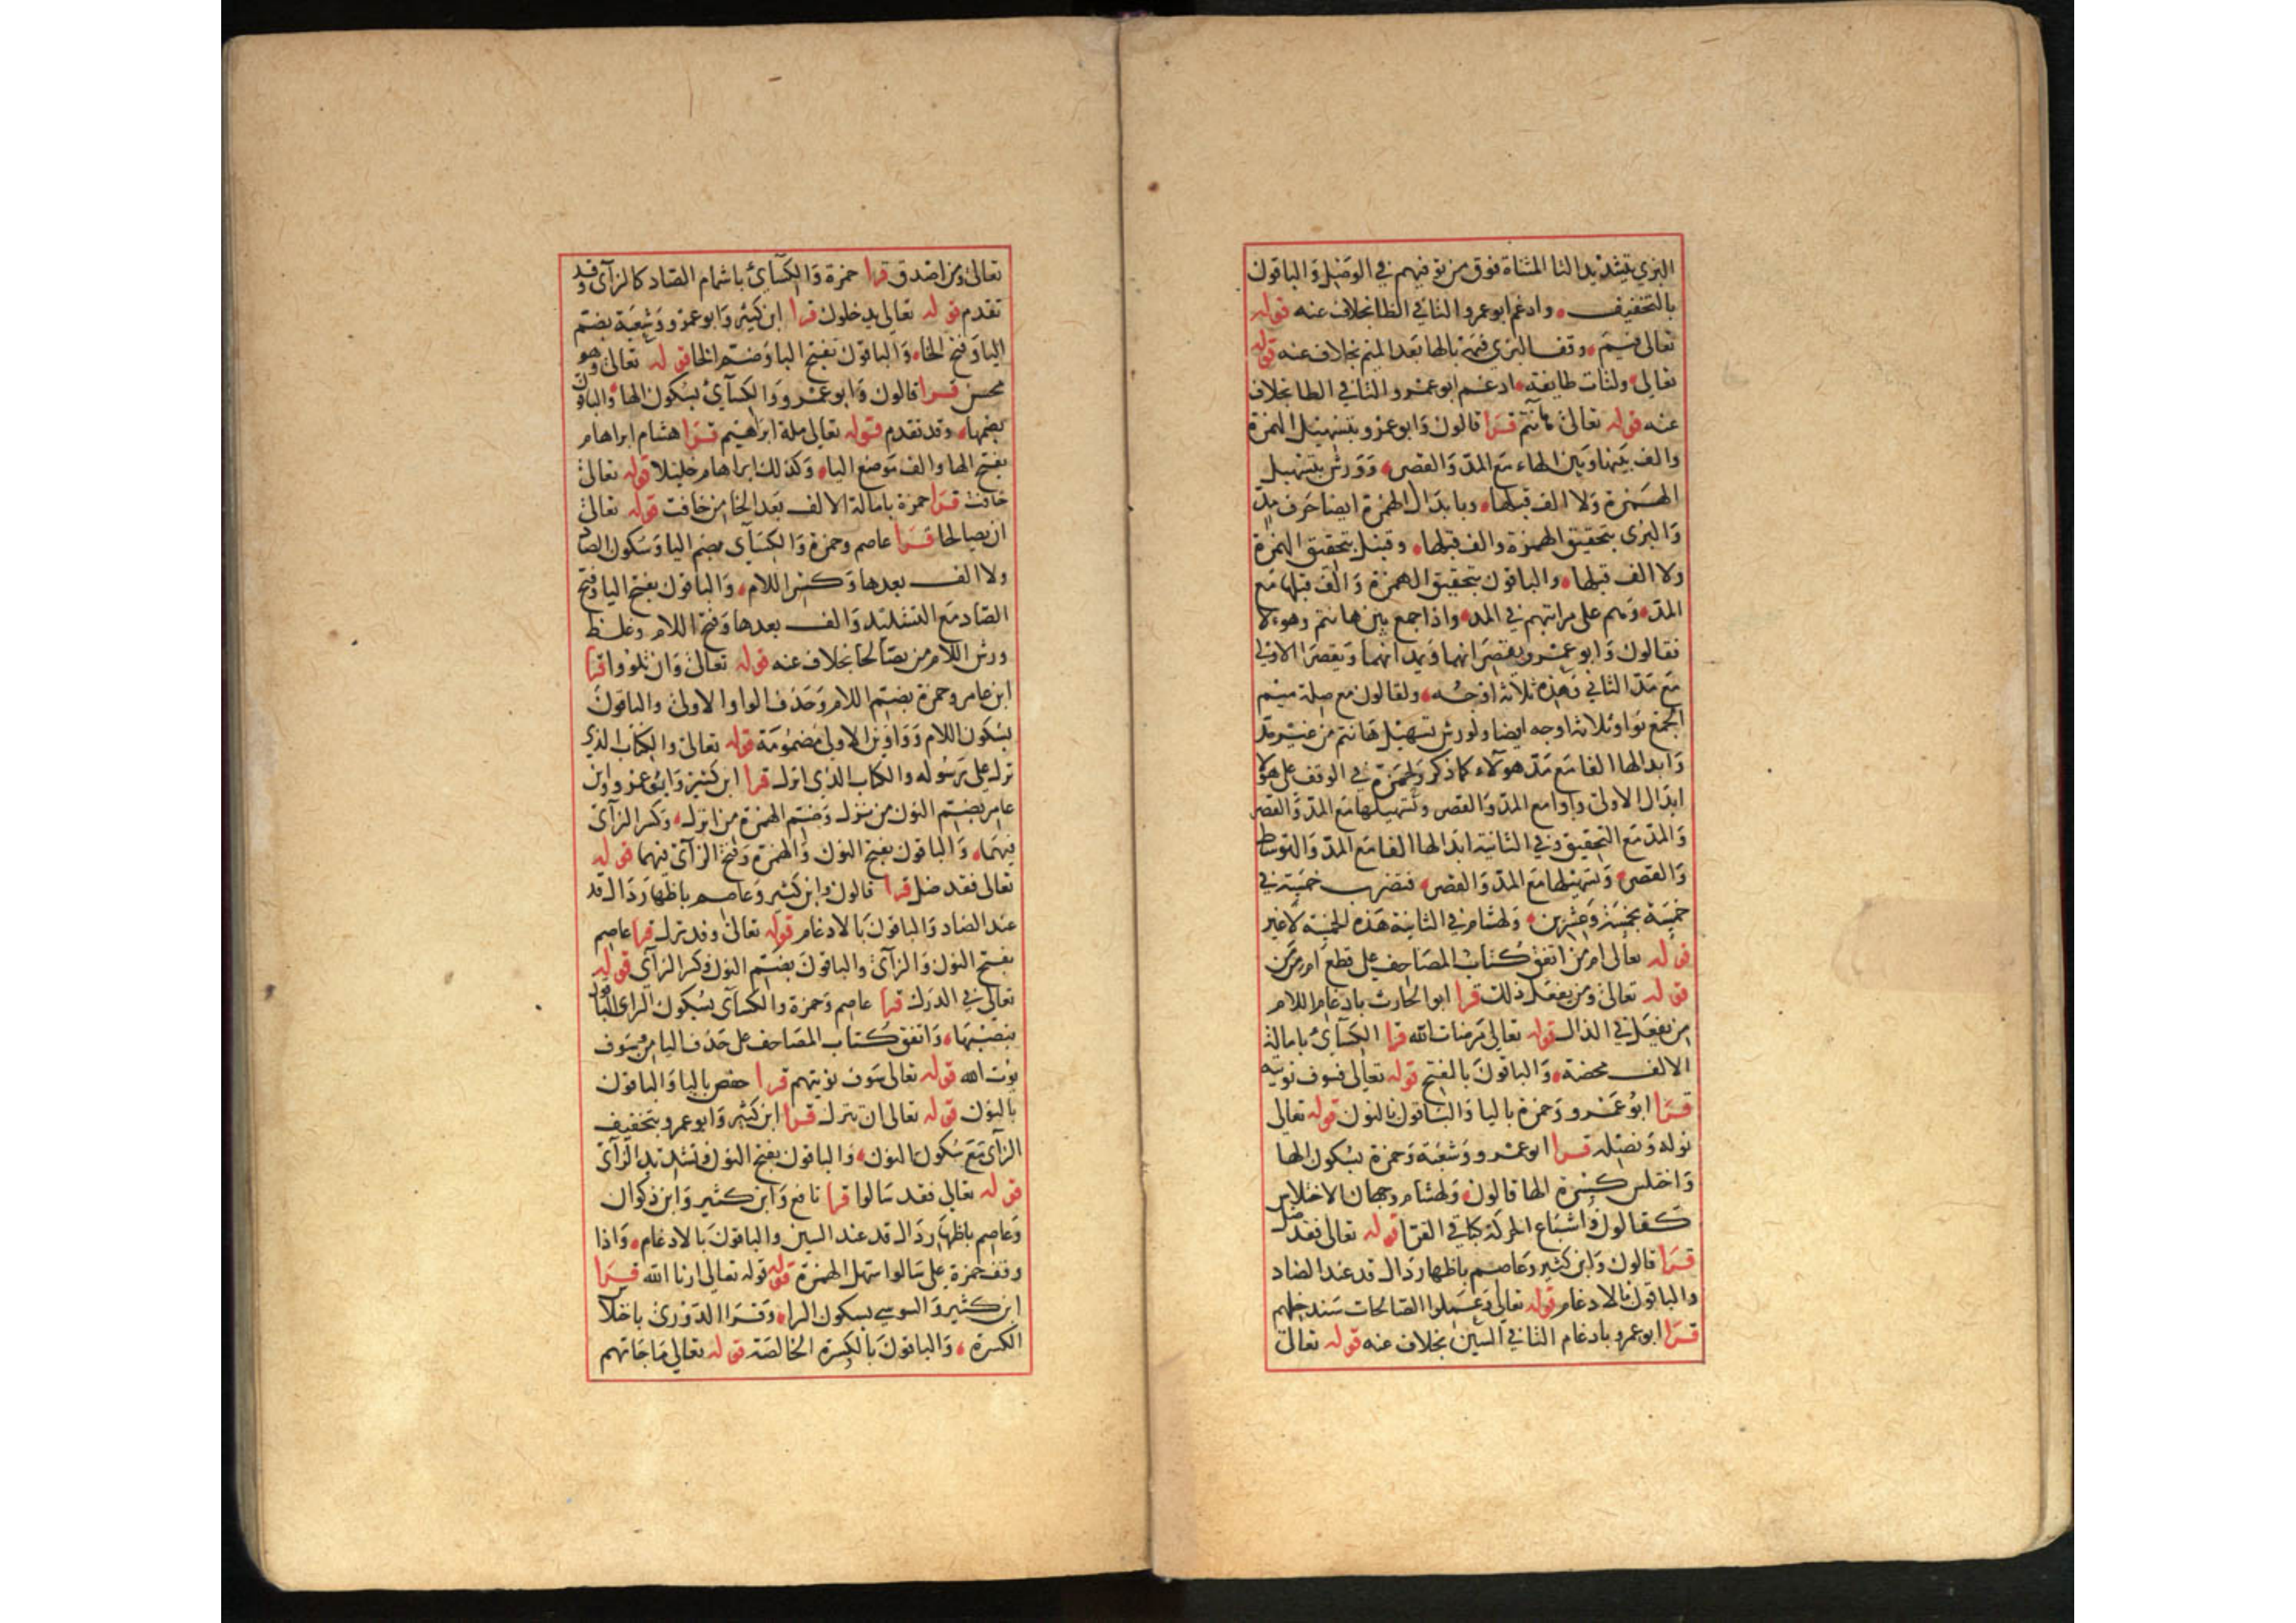 البزي بتشديد التا المثناة فوق من توفيهم في الوصل وَالباقون
بالتخفيف وادغم ابو عمرو التا في الظا بخلاف عنه قوله
تعالى فيم وقف البزي فيمه بالها بعد الميم بخلاف عنه قوله
تعالى ولتات طايفة ادغم ابو عمرو التا في الطا بخلاف
عنه قوله تعالى هآنتم قرا قالون وَابو عمرو بتسهيل الهمزة
والف بينها وبين الهاء مع المدّ وَالقصر وَورش بتسهيل
الهمزة وَلا الف قبلها وبابدال الهمزة ايضا حرف مدّ
وَالبزى بتحقيق الهمزة والف قبلها وقنبل بتحقيق الهمزة
ولا الف قبلها والباقون بتحقيق الهمزة وَالف قبلها مع
المدّ وَهم على مراتبهم في المد واذا جمع بين هانتم وهولا
فقالون وَابو عمرو يقصرانهما وَيمدانهما وَيقصرا الاولى
مع مَدّ الثاني وَهذه ثلاثة اوجه ولقالون مع صلة ميم
الجمع بواو ثلاثة اوجه ايضا ولورش تسهيل هانتم من غير مَدّ
وَابدالها الفا مع مَدّ هولآء كما ذكر وَلحمزة في الوقف على هولا
ابدال الاولى واوا مع المدّ وَالقصر وتسهيلها مع المدّ وَالقصر
وَالمد مع التحقيق وفي الثانية ابدالها الفا مع المدّ وَالتوسط
وَالقصر وَتسهيلها مع المدّ وَالقصر فتضرب خمسة في
خمسة بخمسة وَعشرين وَلهشام في الثانية هَذه الخمسة لاغير
قوله تعالى ام من اتفق كتاب المصَاحف على قطع ام من من
قوله تعالى ومن يفعل ذلك قرا ابو الحارث بادغام اللام
من يفعل في الذال قوله تعالى مرضات الله قرا الكسَآئ بامالة
الالف محضة وَالباقون بالفتح قوله تعالى فسوف نوتيه
قرا ابو عمرو وَحمزة باليا وَالباقون بالنون قوله تعالى
نوله وَنصله قرا ابو عمرو وَشعبة وَحمزة بسكون الها
وَاختلس كسرة الها قالون وَلهشام وجهان الاختلاس
كقالون وَاشباع الحركة كباقي القرا قوله تعالى فقد ضل
قرا قالون وَابن كثير وَعاصم باظهار دَال قد عند الضاد
والباقون بالادغام قوله تعالى وَعملوا الصّالحات سَندخلهم
قرا ابو عمرو بادغام التا في السين بخلاف عنه قوله تعالى
تعالى ومن اصدق قرا حمزة وَالكسَآئ باشمام الصَاد كالزآى وقد
تقدم قوله تعالى يدخلون قرا ابن كثير وَابو عمرو وَشعبة بضم
اليا وَفتح الخا وَالباقون بفتح اليا وَضم الخا قوله تعالى وهو
محسن قرا قالون وَابو عمرو وَالكسآئ بسكون الها والباقون
بضمها وقد تقدم قوله تعالى ملة ابراهيم قرا هشام ابراهام
بفتح الها والف موضع اليا وَكذلك ابراهام خليلا قوله تعالى
خافت قرا حمزة بامالة الالف بَعد الخا من خافت قوله تعالى
ان يصالحا قرا عاصم وحمزة وَالكسَآى بضم اليا وَسكون الصاد
ولا الف بعدها وَكسر اللام وَالباقون بفتح اليا وفتح
الصّاد مع التشديد وَالف بعدها وَفتح اللام وغلظ
ورش اللام من يصّالحا بخلاف عنه قوله تعالى وَان تلووا قرا
ابن عامر وحمزة بضم اللام وَحَذف الواو الاولى والباقون
بسكون اللام وَوَاوين الاولى مضمومَة قوله تعالى والكتاب الذي
نزل على رسُوله والكتاب الذي انزل قرا ابن كثير وَابو عمرو وابن
عامر بضم النون من نزل وَضم الهمزة من انزل وَكسر الزآى
فيهمَا وَالباقون بفتح النون وَالهمزة وَفتح الزآى فيهما قوله
تعالى فقد ضل قرا قالون وابن كثير وَعاصم باظهار دَال قد
عند الضاد وَالباقون بالادغام قوله تعالى وقد نزل قرا عاصم
بفتح النون وَالزآى والباقون بضم النون وكسر الزآي قوله
تعالى في الدرك قرا عاصم وَحمزة والكسآى بسكون الراى والباقون
بنصبهَا وَاتفق كتاب المصَاحف على حَذف اليا من وسَوف
يؤت الله قوله تعالى سَوف نوتيهم قرا حفص باليا وَالباقون
بالنون قوله تعالى ان تنزل قرا ابن كثير وَابو عمرو بتخفيف
الزآى مَع سُكون النون وَالباقون بفتح النون وتشديد الزآى
قوله تعالى فقد سَالوا قرا نافع وَابن كثير وَابن ذكوان
وَعاصم باظهَار دَال قد عند السين والباقون بالادغام وَاذا
وقف حمزة على سَالوا سَهل الهمزة قوله قوله تعالى ارنا الله قرا
ابن كثير وَالسوسي بسكون الرا وَقرا الدّورى باختلاس
الكسرة وَالباقون بالكسرة الخالصَة قوله تعالى مَا جَاتهم